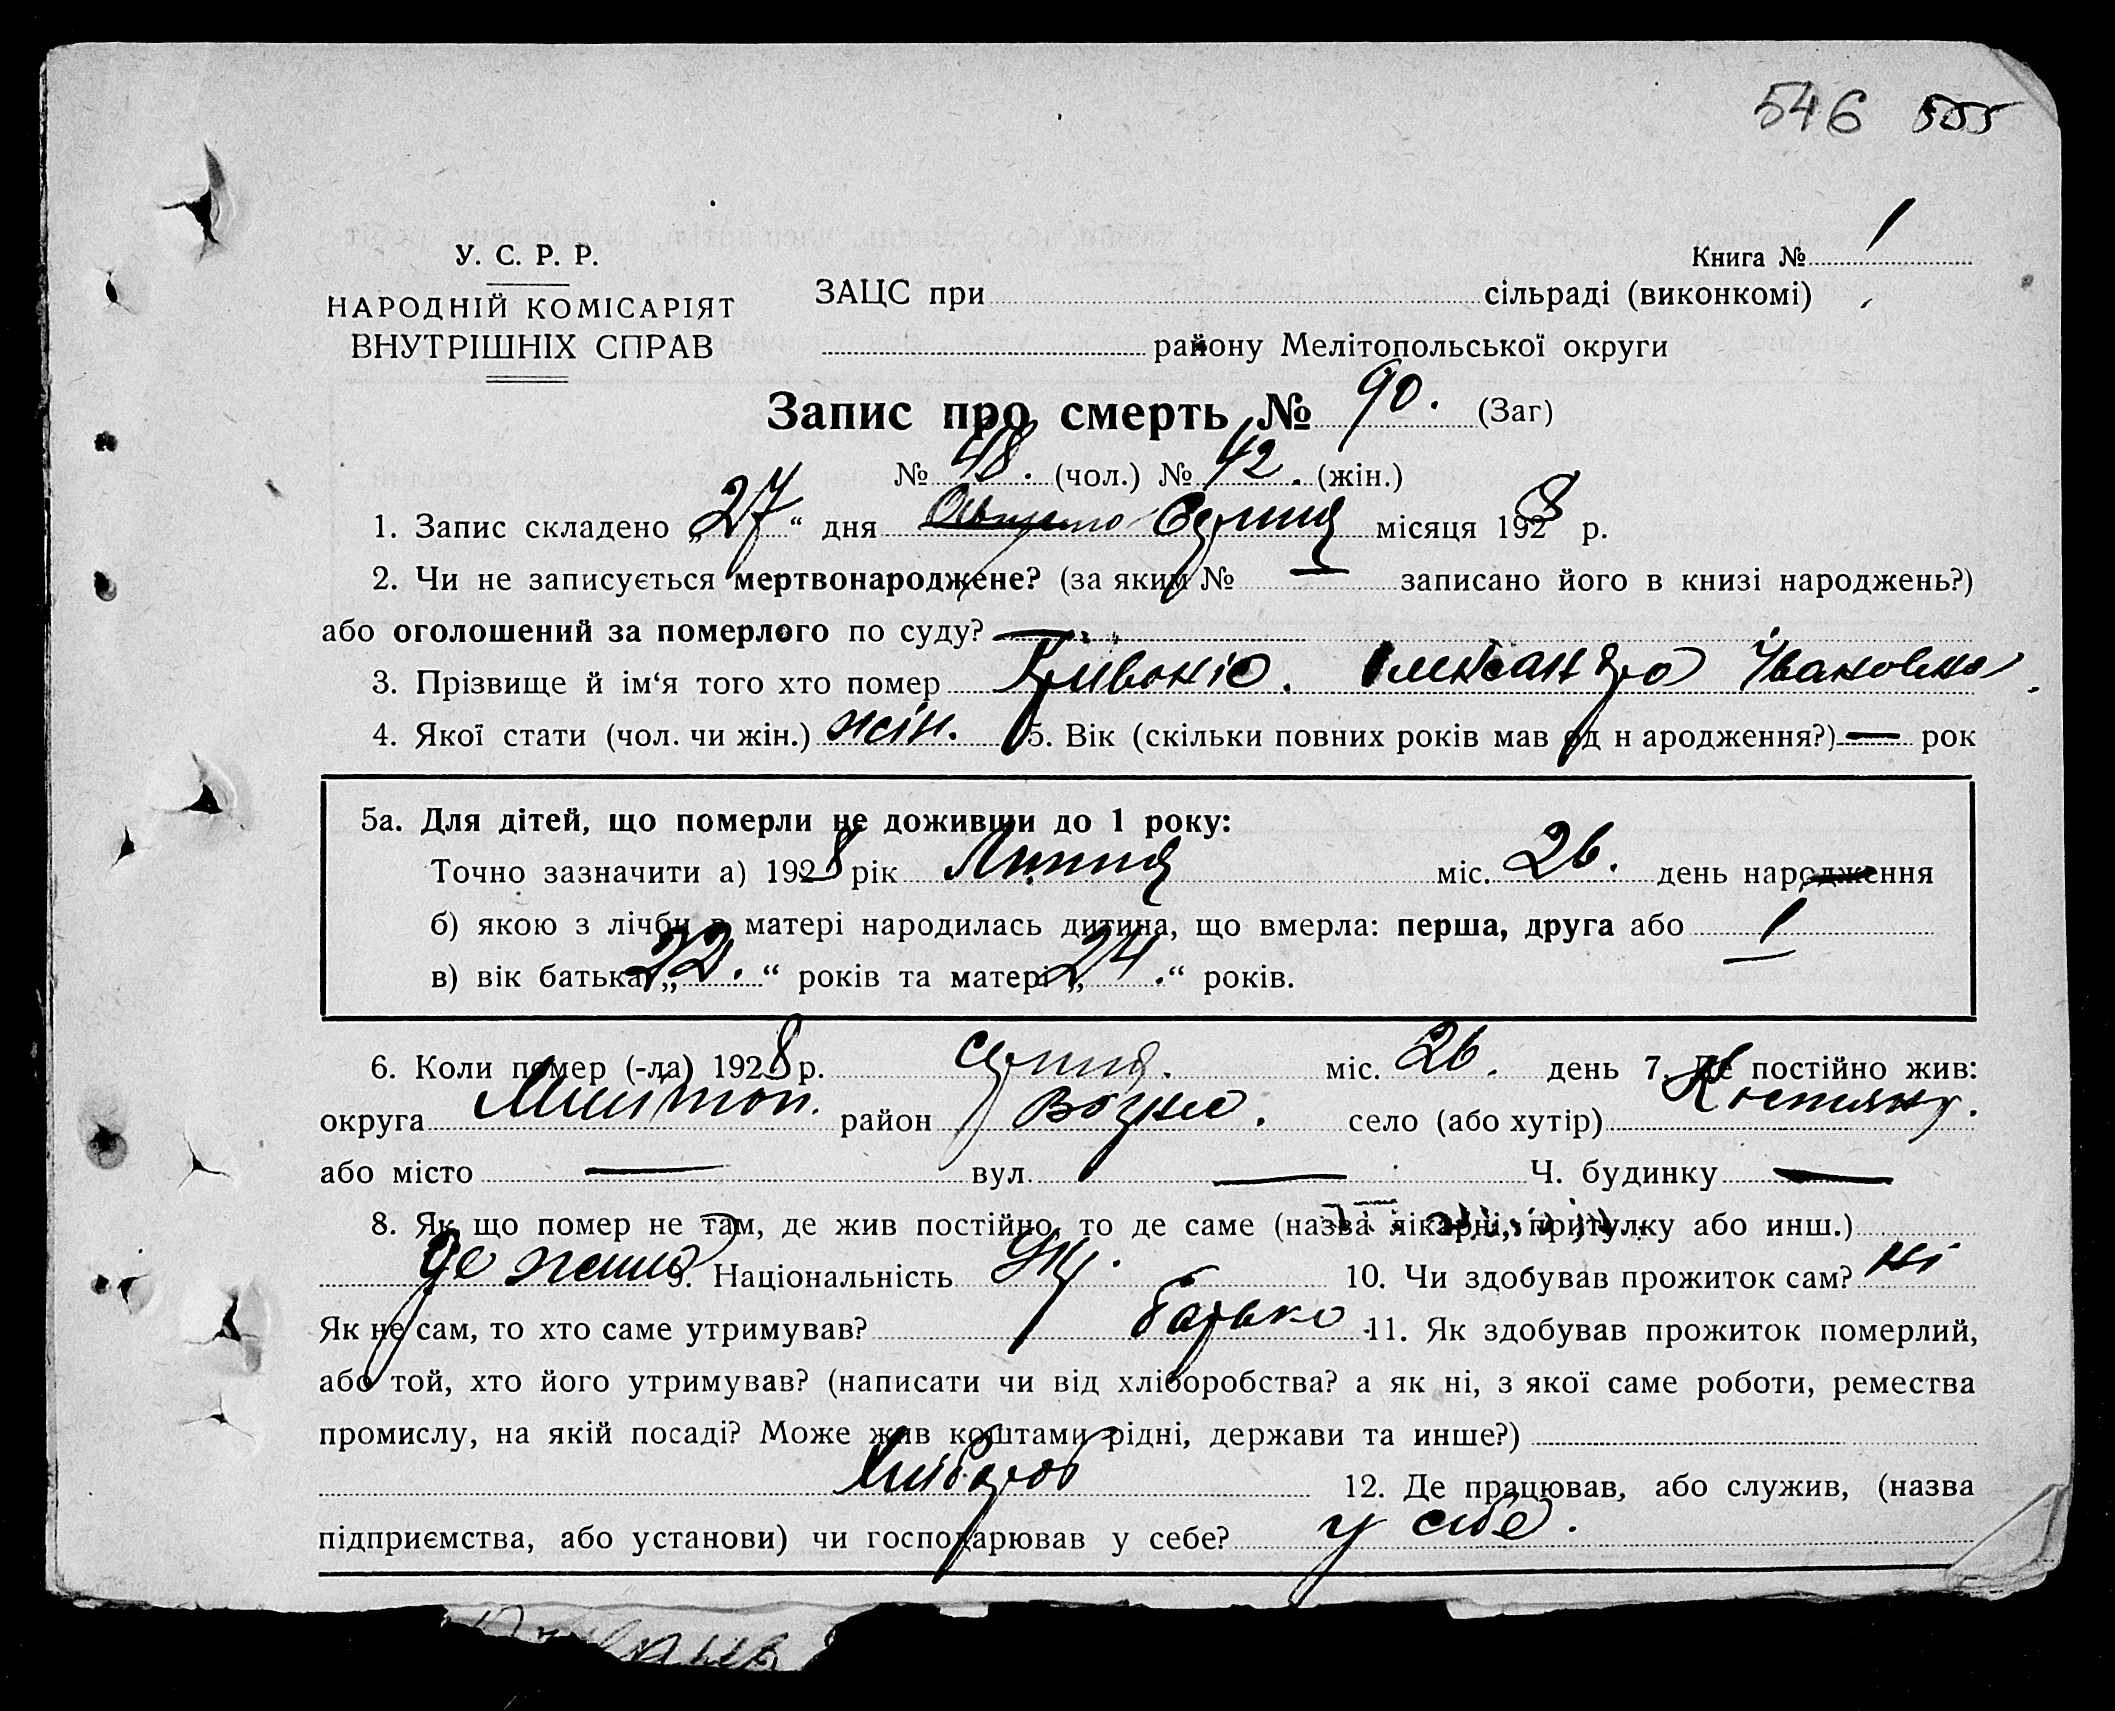 546 555
У. С. Р. Р.
Книга № 1
НАРОДНІЙ КОМІСАРІЯТ
ВНУТРІШНІХ СПРАВ
ЗАЦС при сільраді (виконкомі)
району Мелітопольської округи
Запис про смерть № 90. (Заг)
№ 48. (чол.) № 42. (жін.)
1. Запис складено „27“ дня Серпня місяця 1928 р.
2. Чи не записується мертвонароджене? (за яким № — записано його в книзі народжень?)
або оголошений за померлого по суду? —
3. Прізвище й ім‘я того хто помер Івановна
4. Якої стати (чол. чи жін.) жін. 5. Вік (скільки повних років мав од н ародження?) — рок
5а. Для дітей, що померли не доживши до 1 року:
Точно зазначити а) 1928 рік Липня міс. 26. день народження
б) якою з лічби в матері народилась дитина, що вмерла: перша, друга або 1
в) вік батька „22.“ років та матері „24.“ років.
6. Коли помер (-ла) 1928 р. серпня. міс. 26. день 7. Де постійно жив:
округа Мелітоп. район село (або хутір)
або місто — вул. — Ч. будинку —
8. Як що помер не там, де жив постійно, то де саме (назва лікарні, притулку або инш.)
9. Національність Укр. 10. Чи здобував прожиток сам? ні
Як не сам, то хто саме утримував? батько 11. Як здобував прожиток померлий,
або той, хто його утримував? (написати чи від хліборобства? а як ні, з якої саме роботи, ремества
промислу, на якій посаді? Може жив коштами рідні, держави та инше?)
Хлібороб 12. Де працював, або служив, (назва
підприємства, або установи) чи господарював у себе? у себе.